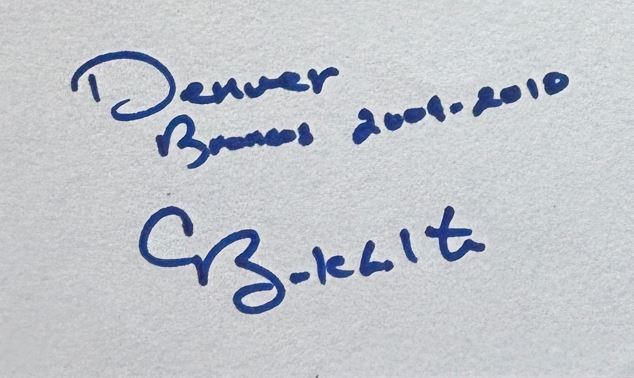 Denver
Broncos 2009-2010